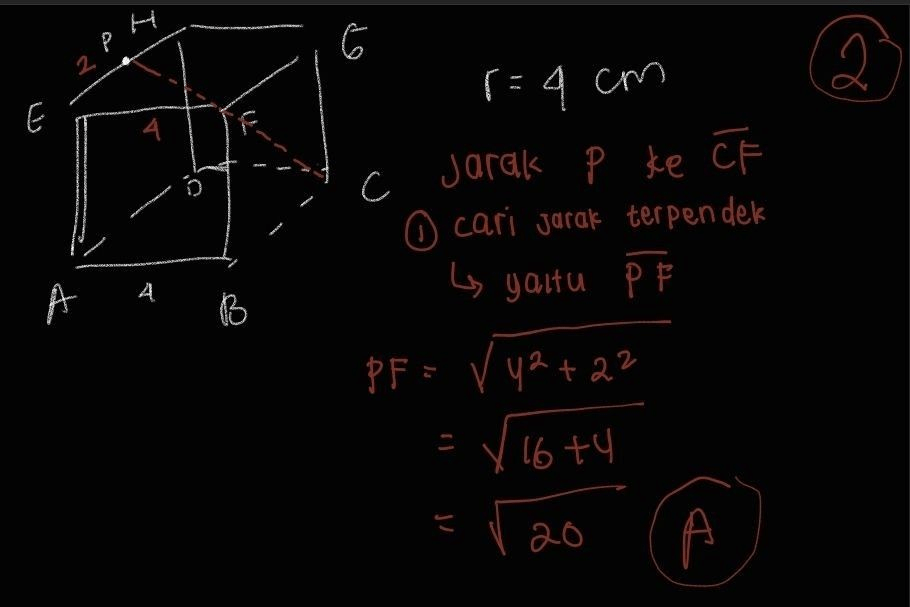 2
H
P
2
G
E
4
F
D
C
A
4
B
r = 4 cm
Jarak P ke CF
① cari jarak terpendek
↳ yaitu PF
PF = √4² + 2²
= √16 + 4
= √20
A